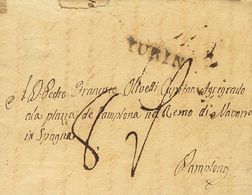 TURIN
A D. Pedro Francisco Olivetti Capitan Agregado
a la plazza de Pamplona nel Regno di Navarra
in Spagna
Pamplona